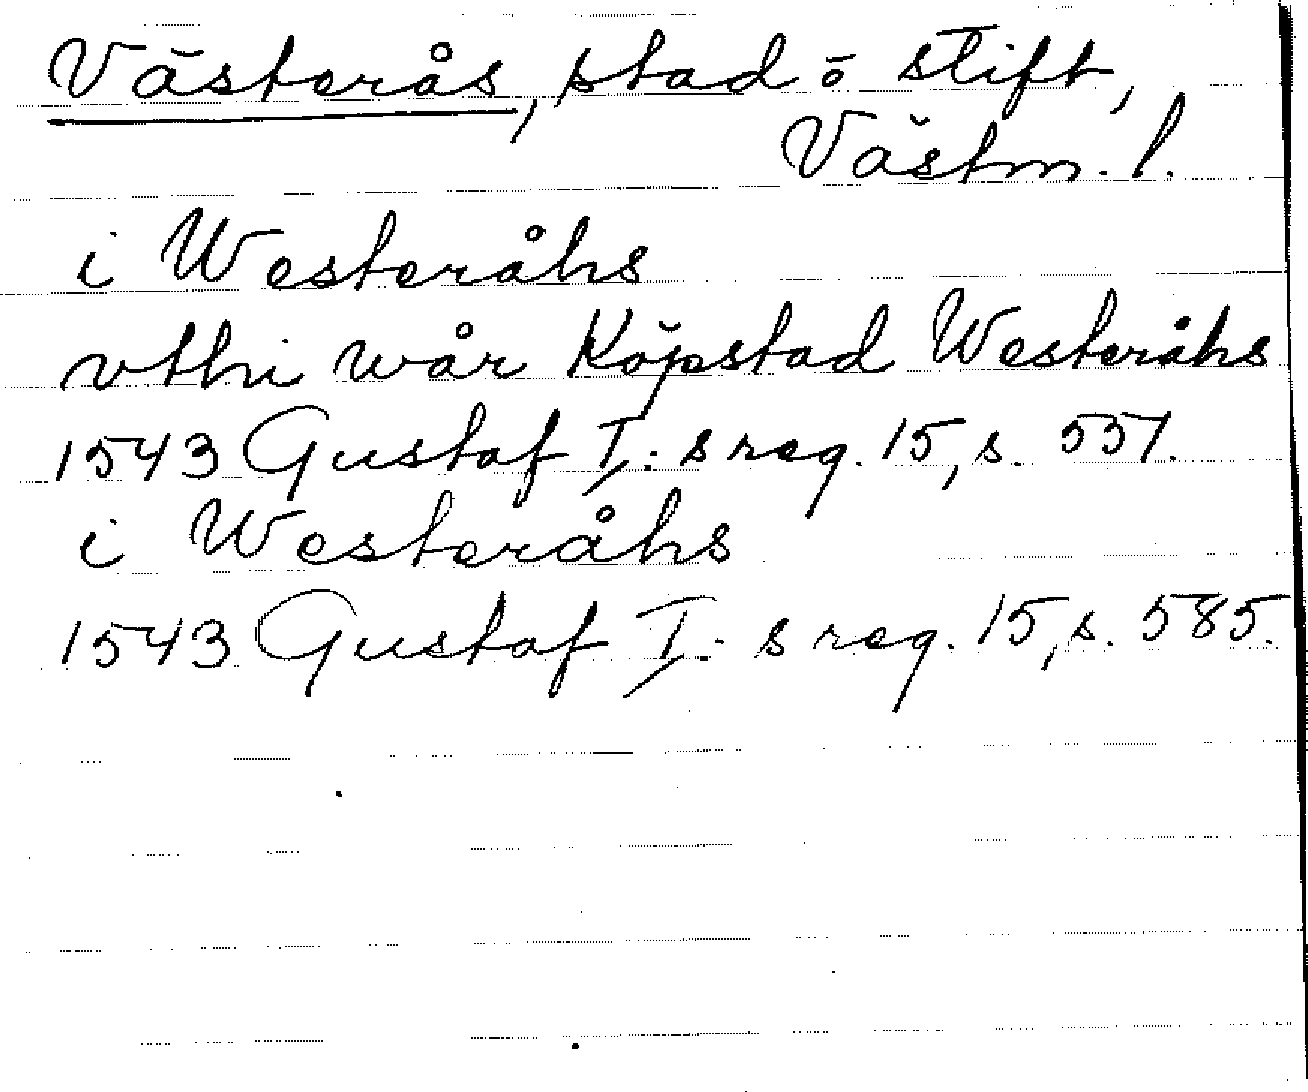 Västerås, stad o stift,
Västm. l.
i Westeråhs
vthi wår Köpstad Westeråhs
1543 Gustaf I:s reg. 15, s. 551.
i Westeråhs
1543 Gustaf I:s reg. 15, s. 585.